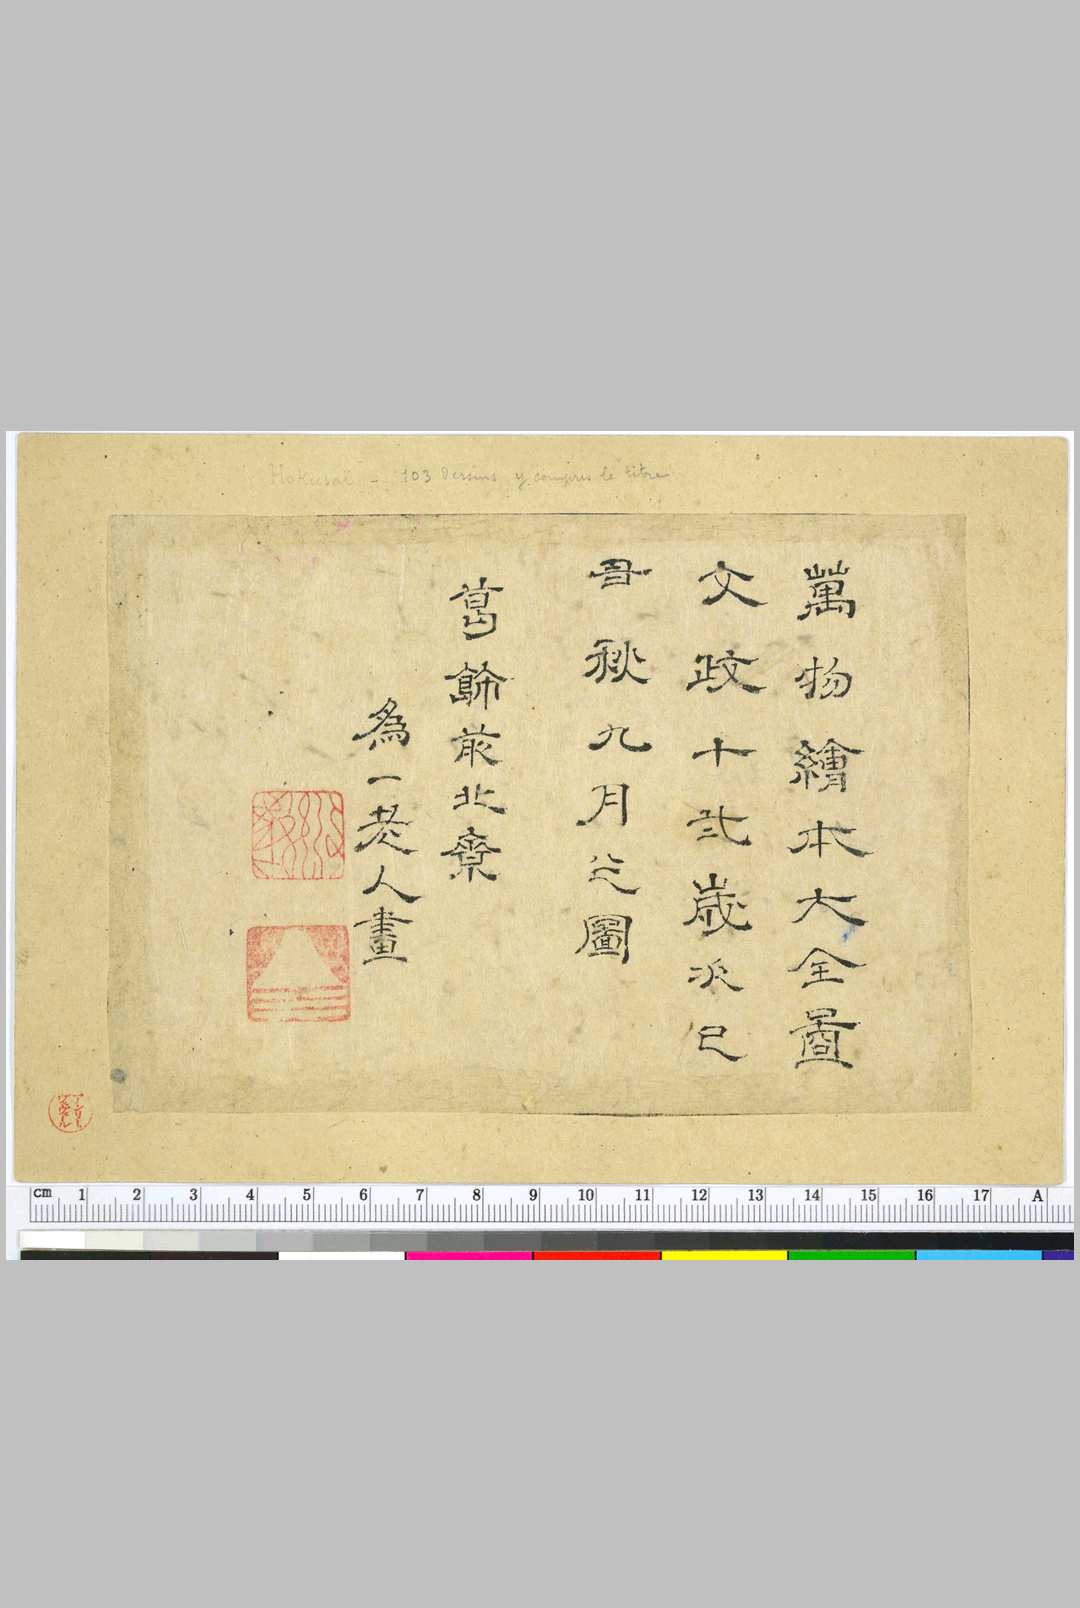 Hokusaï - 103 Dessins y compris le titre
萬物繪本大全圖
文政十弍歲次己
丑秋九月之圖
葛飾前北齋
為一老人畫
cm 1 2 3 4 5 6 7 8 9 10 11 12 13 14 15 16 17 A